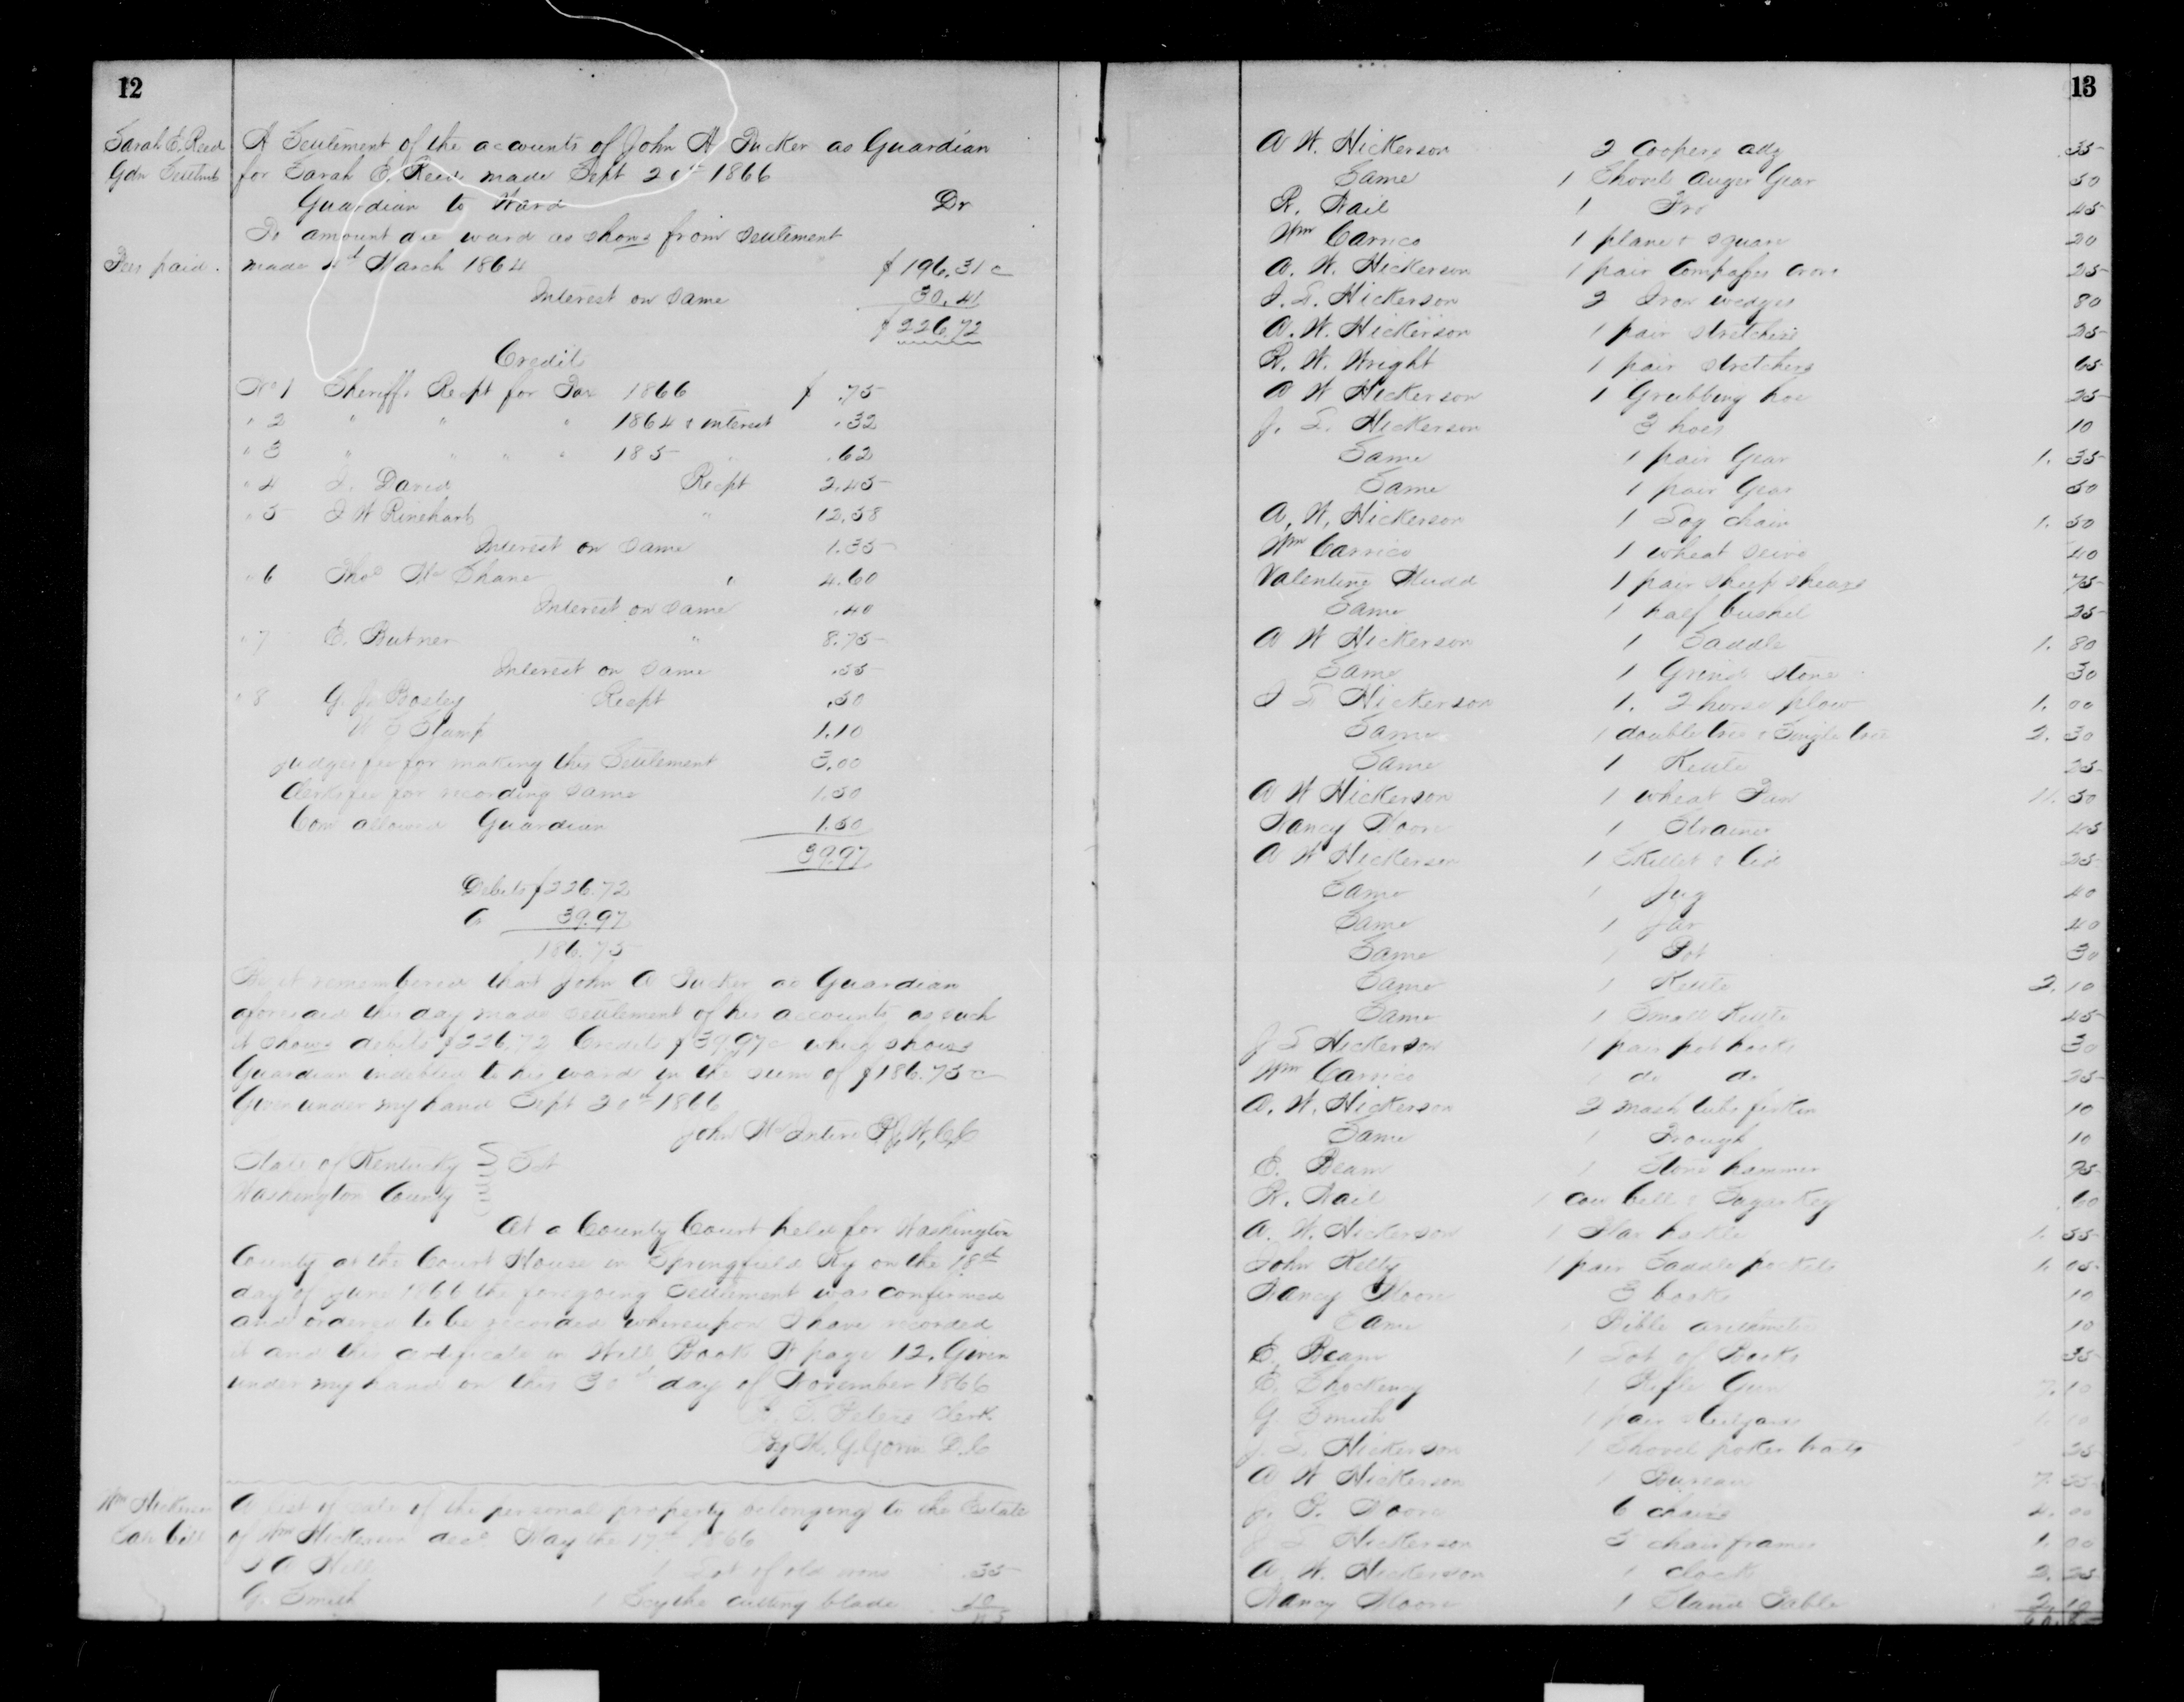 12
Sarah E. Reed
Gdn Settlmt
A Settlement of the accounts of John A Tucker as Guardian
for Sarah E. Reed made Sept 20th 1866
Guardian to Ward Dr
To amount due ward as shows from settlement
Fees paid.
made March 1864 $196.31c
Interest on same 30.41
$226.72
Credits
No 1 Sheriffs Recpt for Tax 1866 $ .75
" 2 " " " 1864 & interest .32
" 3 " " " " 185 .62
" 4 David Recpt 2.45
" 5 J W Rinehart " 12.58
Interest on same 1.35
" 6 Thos McShane " 4.60
Interest on same .40
" 7 E. Butner " 8.75
Interest on same .55
" 8 G. J. Bosley Recpt .50
Stamp 1.10
Judges fee for making this Settlement 3.00
Clerks fee for recording same 1.50
Com allowed Guardian 1.50
39.97
Debits $226.72
C 39.97
186.75
Be it remembered that John A Tucker as Guardian
aforesaid this day made settlement of his accounts as such
it shows debits $226.72 Credits $39.97c which shows
Guardian indebted to his ward in the sum of $186.75c
Given under my hand Sept 20th 1866
John McIntire P. J. W. C. C
State of Kentucky } Sct
Washington County
At a County Court held for Washington
County at the Court House in Springfield Ky on the 18th
day of June 1866 the foregoing Settlement was confirmed
and ordered to be recorded whereupon I have recorded
it and this certificate in Will Book page 12. Given
under my hand on this 30th day of November 1866
Peters Clerk
By G. Gorin D. C
Wm Hickerson
Sale bill
A list of sale of the personal property belonging to the Estate
of Wm Hickerson decd May the 17th 1866
A Hill 1 Lot of old irons .35
G. Smith 1 Scythe cutting blade 10
13
A W. Hickerson 2 Coopers adz .35
Same 1 Shovel auger Gear 50
R. Nail 1 Fro 45
Wm Carrico 1 plane & square 20
A. W. Hickerson 1 pair Compasses 25
J. S. Hickerson 2 Iron wedges 80
A. W. Hickerson 1 pair stretchers 25
R. W. Wright 1 pair stretchers 65
A W Hickerson 1 Grubbing hoe 25
J. S. Hickerson 3 hoes 10
Same 1 pair Gear 1. 35
Same 1 pair Gear 50
A. W. Hickerson 1 Log chain 1. 50
Wm Carrico 1 wheat seive 40
Valentine Mudd 1 pair sheep shears 75
Same 1 half bushel 25
A W Hickerson 1 Saddle 1. 80
Same 1 Grind stone 30
J S Hickerson 1. 2 horse plow 1. 00
Same 1 double tree & Single tree 2. 30
Same 1 Kettle 25
A W Hickerson 1 wheat Fan 11. 50
Nancy Moore 1 Strainer 45
A W Hickerson 1 Skillet & Lid 25
Same 1 Jug 40
Same 1 Jar 40
Same 1 Pot 30
Same 1 Kettle 2. 10
Same 1 Small Kettle 45
J S Hickerson 1 pair pot hooks 30
Wm Carrico 1 do do 25
A. W. Hickerson 2 mash tubs firkin 10
Same 1 Trough 10
E. Beam 1 Stone hammer 95
R. Nail 1 cow bell & Sugar Keg .60
A. W. Hickerson 1 Flax hackle 1. 55
John Kelty 1 pair Saddle pockets 1. 05
Nancy Moore 3 books 10
Same 1 Bible 10
E. Beam 1 Lot of Books 35
E. Shockency 1 Rifle Gun 7. 10
G. Smith 1 pair 1. 10
J. S. Hickerson 1 Shovel poker 25
A W Hickerson 1 Bureau 7. 55
J. P. Moore 6 chairs 4. 00
J S Hickerson 5 chair frames 1. 00
A. W. Hickerson 1 clock 2. 25
Nancy Moore 1 Stand Table 2. 10